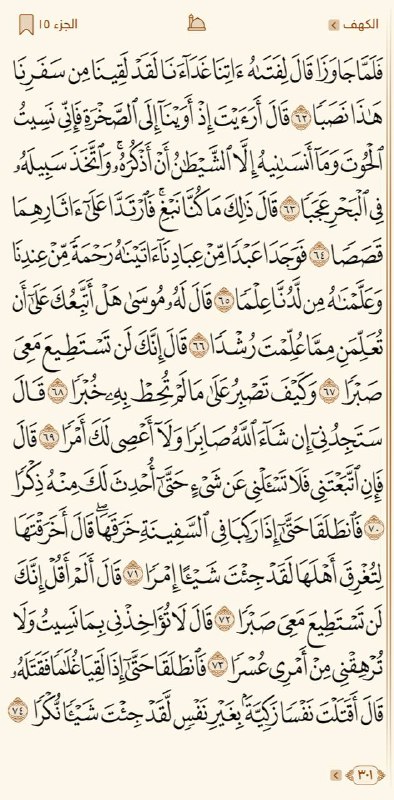 الكهف
الجزء ١٥
فَلَمَّا جَاوَزَا قَالَ لِفَتَىٰهُ ءَاتِنَا غَدَآءَنَا لَقَدْ لَقِينَا مِن سَفَرِنَا
هَٰذَا نَصَبًا ٦٢ قَالَ أَرَءَيْتَ إِذْ أَوَيْنَآ إِلَى ٱلصَّخْرَةِ فَإِنِّي نَسِيتُ
ٱلْحُوتَ وَمَآ أَنسَىٰنِيهُ إِلَّا ٱلشَّيْطَٰنُ أَنْ أَذْكُرَهُۥۚ وَٱتَّخَذَ سَبِيلَهُۥ
فِي ٱلْبَحْرِ عَجَبًا ٦٣ قَالَ ذَٰلِكَ مَا كُنَّا نَبْغِۚ فَٱرْتَدَّا عَلَىٰٓ ءَاثَارِهِمَا
قَصَصًا ٦٤ فَوَجَدَا عَبْدًا مِّنْ عِبَادِنَآ ءَاتَيْنَٰهُ رَحْمَةً مِّنْ عِندِنَا
وَعَلَّمْنَٰهُ مِن لَّدُنَّا عِلْمًا ٦٥ قَالَ لَهُۥ مُوسَىٰ هَلْ أَتَّبِعُكَ عَلَىٰٓ أَن
تُعَلِّمَنِ مِمَّا عُلِّمْتَ رُشْدًا ٦٦ قَالَ إِنَّكَ لَن تَسْتَطِيعَ مَعِيَ
صَبْرًا ٦٧ وَكَيْفَ تَصْبِرُ عَلَىٰ مَا لَمْ تُحِطْ بِهِۦ خُبْرًا ٦٨ قَالَ
سَتَجِدُنِيٓ إِن شَآءَ ٱللَّهُ صَابِرًا وَلَآ أَعْصِي لَكَ أَمْرًا ٦٩ قَالَ
فَإِنِ ٱتَّبَعْتَنِي فَلَا تَسْـَٔلْنِي عَن شَيْءٍ حَتَّىٰٓ أُحْدِثَ لَكَ مِنْهُ ذِكْرًا
٧٠ فَٱنطَلَقَا حَتَّىٰٓ إِذَا رَكِبَا فِي ٱلسَّفِينَةِ خَرَقَهَاۖ قَالَ أَخَرَقْتَهَا
لِتُغْرِقَ أَهْلَهَا لَقَدْ جِئْتَ شَيْـًٔا إِمْرًا ٧١ قَالَ أَلَمْ أَقُلْ إِنَّكَ
لَن تَسْتَطِيعَ مَعِيَ صَبْرًا ٧٢ قَالَ لَا تُؤَاخِذْنِي بِمَا نَسِيتُ وَلَا
تُرْهِقْنِي مِنْ أَمْرِي عُسْرًا ٧٣ فَٱنطَلَقَا حَتَّىٰٓ إِذَا لَقِيَا غُلَٰمًا فَقَتَلَهُۥ
قَالَ أَقَتَلْتَ نَفْسًا زَكِيَّةًۢ بِغَيْرِ نَفْسٍ لَّقَدْ جِئْتَ شَيْـًٔا نُّكْرًا ٧٤
٣٠١